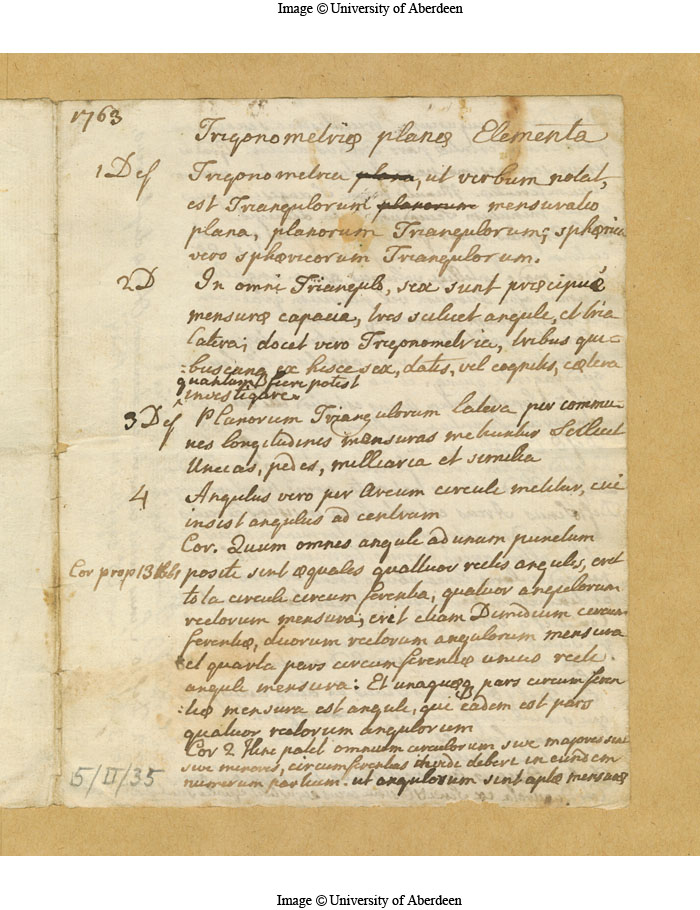 Image © University of Aberdeen
1763
Trigonometriæ planæ Elementa
1 Def Trigonometria plana, ut verbum notat,
est Triangulorum planorum mensuratio
plana, planorum Triangulorum; sphærica
vero sphæricorum Triangulorum.
2 D In omni Triangulo, sex sunt præcipué
mensuræ capacia, tres scilicet anguli, et tria
latera; docet vero Trigonometria, tribus qui-
-buscunq ex hisce sex, datis, vel cognitis, cætera
quantum fieri potest
investigare.
3 Def Planorum Triangulorum latera per commu-
nes longitudinis mensuras metiuntur Scilicet
Uncias, pedes, milliaria et similia
4 Angulus vero per Arcum circuli metitur, cui
insist angulus ad centrum
Cor. Quum omnes anguli ad unam punctum
Cor prop 13 lib 1 positi sint æquales quattuor rectis angulis, erit
tota circuli circumferentia, quatuor angulorum
rectorum mensura; erit etiam Dimidium circum-
ferentiæ, duorum rectorum angulorum mensura
et quarta pars circumferentiæ unius recti
anguli mensura: Et unaquæq pars circumferen-
-tiæ mensura est anguli, qui eadem est pars
quatuor rectorum angulorum
Cor 2 Hinc patet omnium circulorum sive majores sint
sive minores, circumferentias dividi debere in eundem
numerum partium. ut angulorum sint aptæ mensuræ
5/II/35
Image © University of Aberdeen